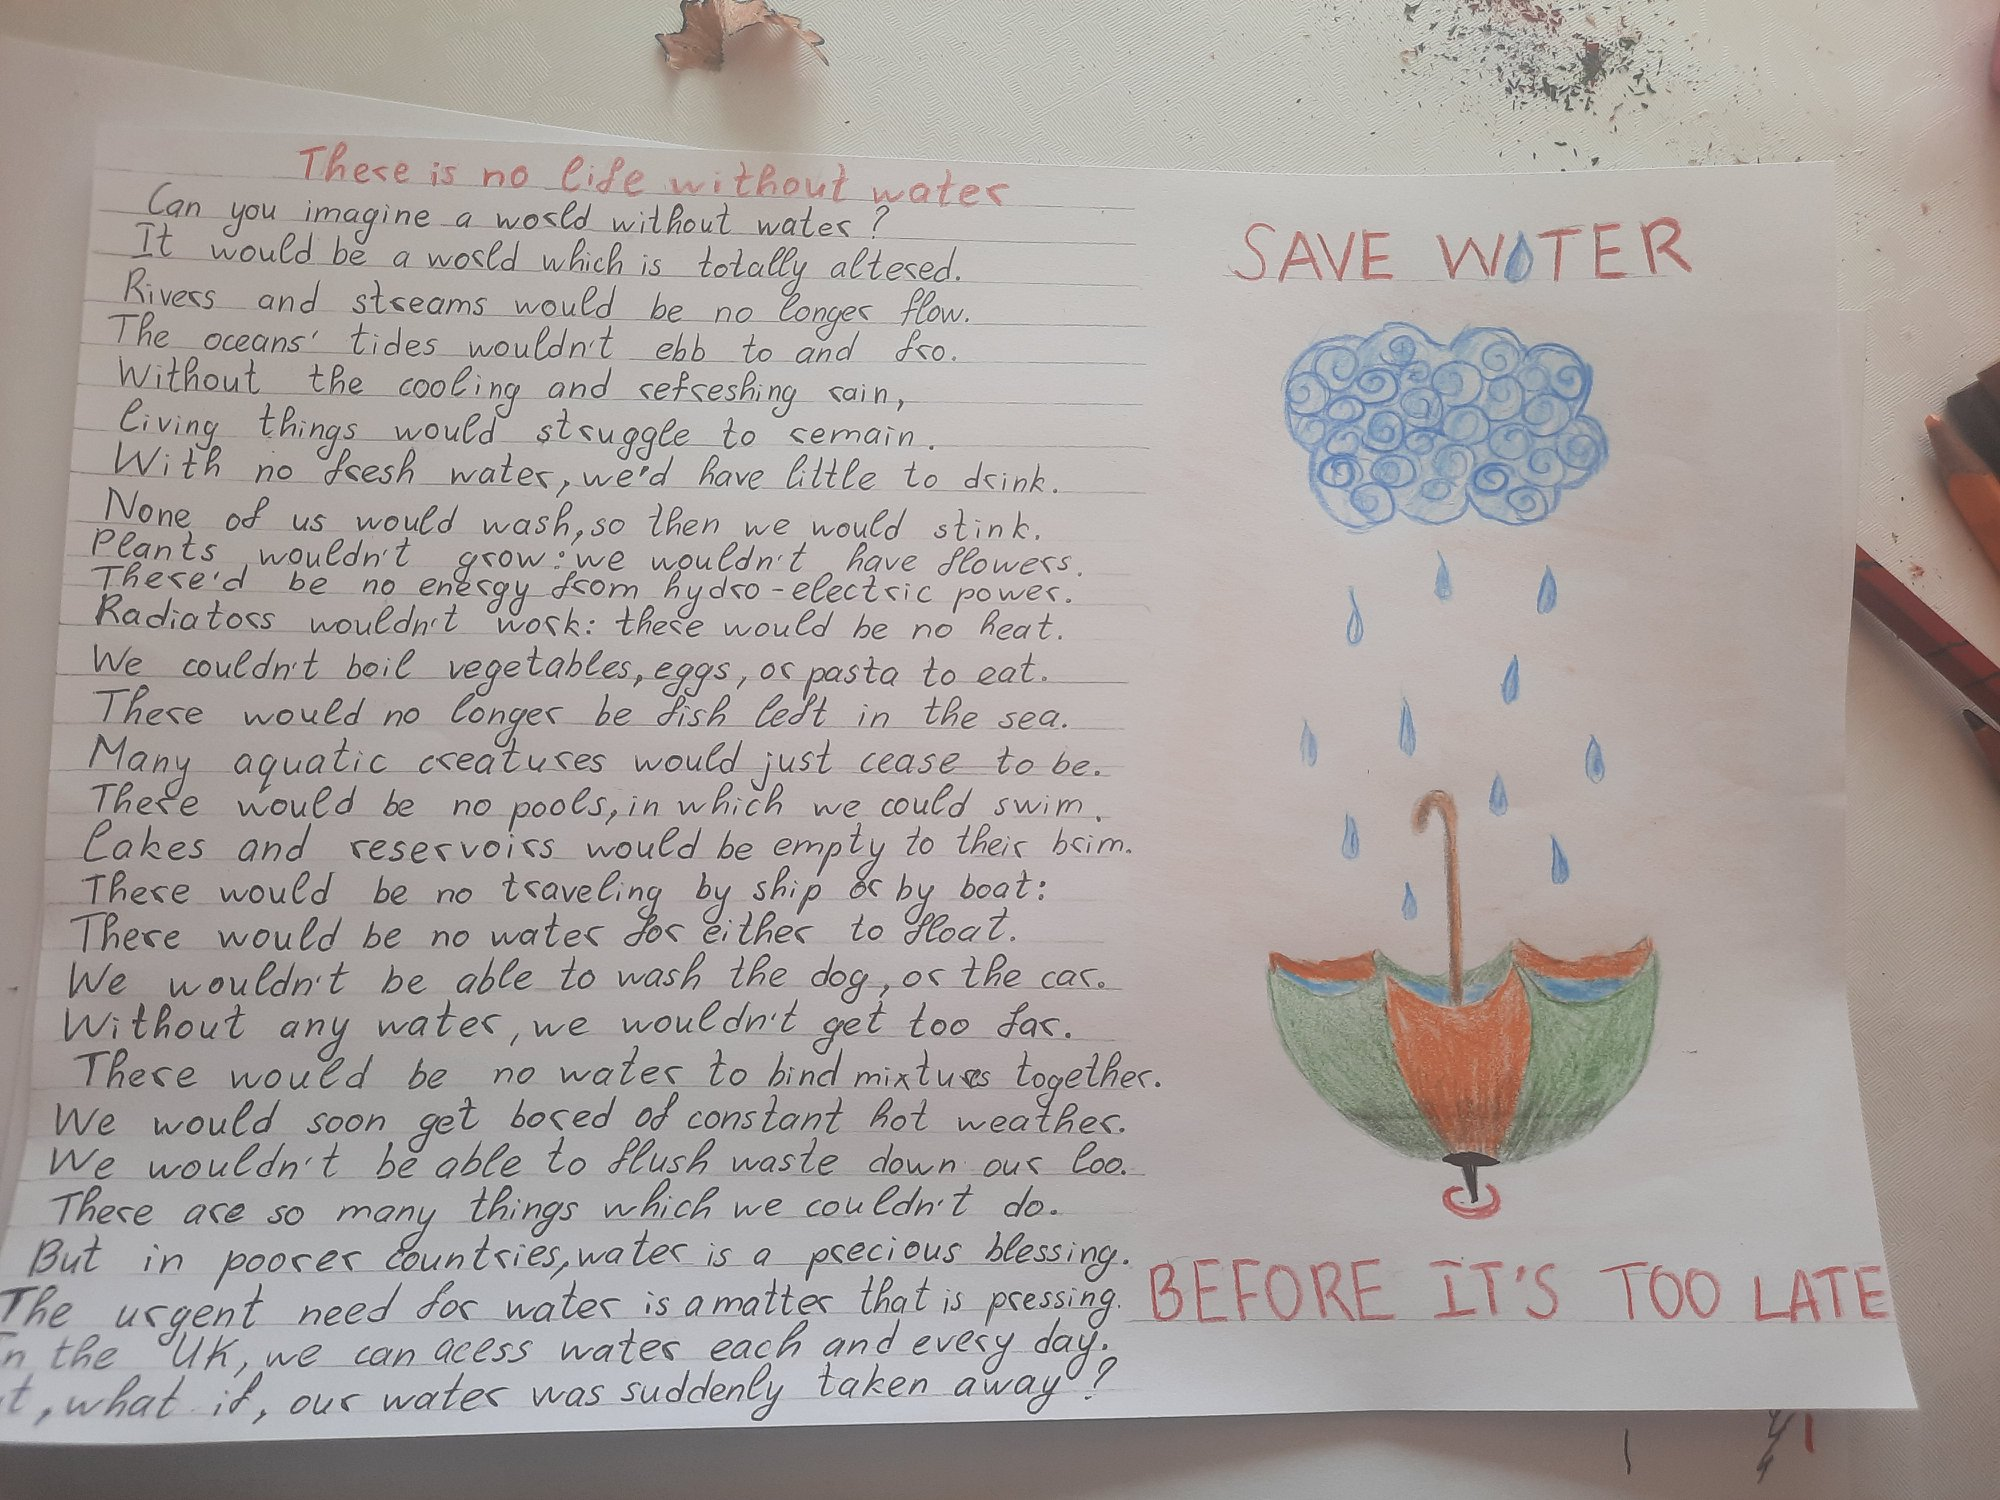 There is no life without water
Can you imagine a world without water?
It would be a world which is totally altered.
Rivers and streams would be no longer flow.
The oceans' tides wouldn't ebb to and fro.
Without the cooling and refreshing rain,
living things would struggle to remain.
With no fresh water, we'd have little to drink.
None of us would wash, so then we would stink.
Plants wouldn't grow: we wouldn't have flowers.
There'd be no energy from hydro-electric power.
Radiators wouldn't work: there would be no heat.
We couldn't boil vegetables, eggs, or pasta to eat.
There would no longer be fish left in the sea.
Many aquatic creatures would just cease to be.
There would be no pools, in which we could swim.
Lakes and reservoirs would be empty to their brim.
There would be no traveling by ship or by boat:
There would be no water for either to float.
We wouldn't be able to wash the dog, or the car.
Without any water, we wouldn't get too far.
There would be no water to bind mixtures together.
We would soon get bored of constant hot weather.
We wouldn't be able to flush waste down our loo.
There are so many things which we couldn't do.
But in poorer countries, water is a precious blessing.
The urgent need for water is a matter that is pressing.
In the UK, we can acess water each and every day.
, what if, our water was suddenly taken away?
SAVE WATER
BEFORE IT'S TOO LATE